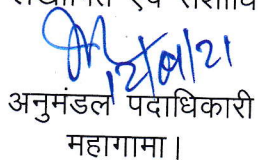 एवं
12/01/21
अनुमंडल पदाधिकारी
महागामा।